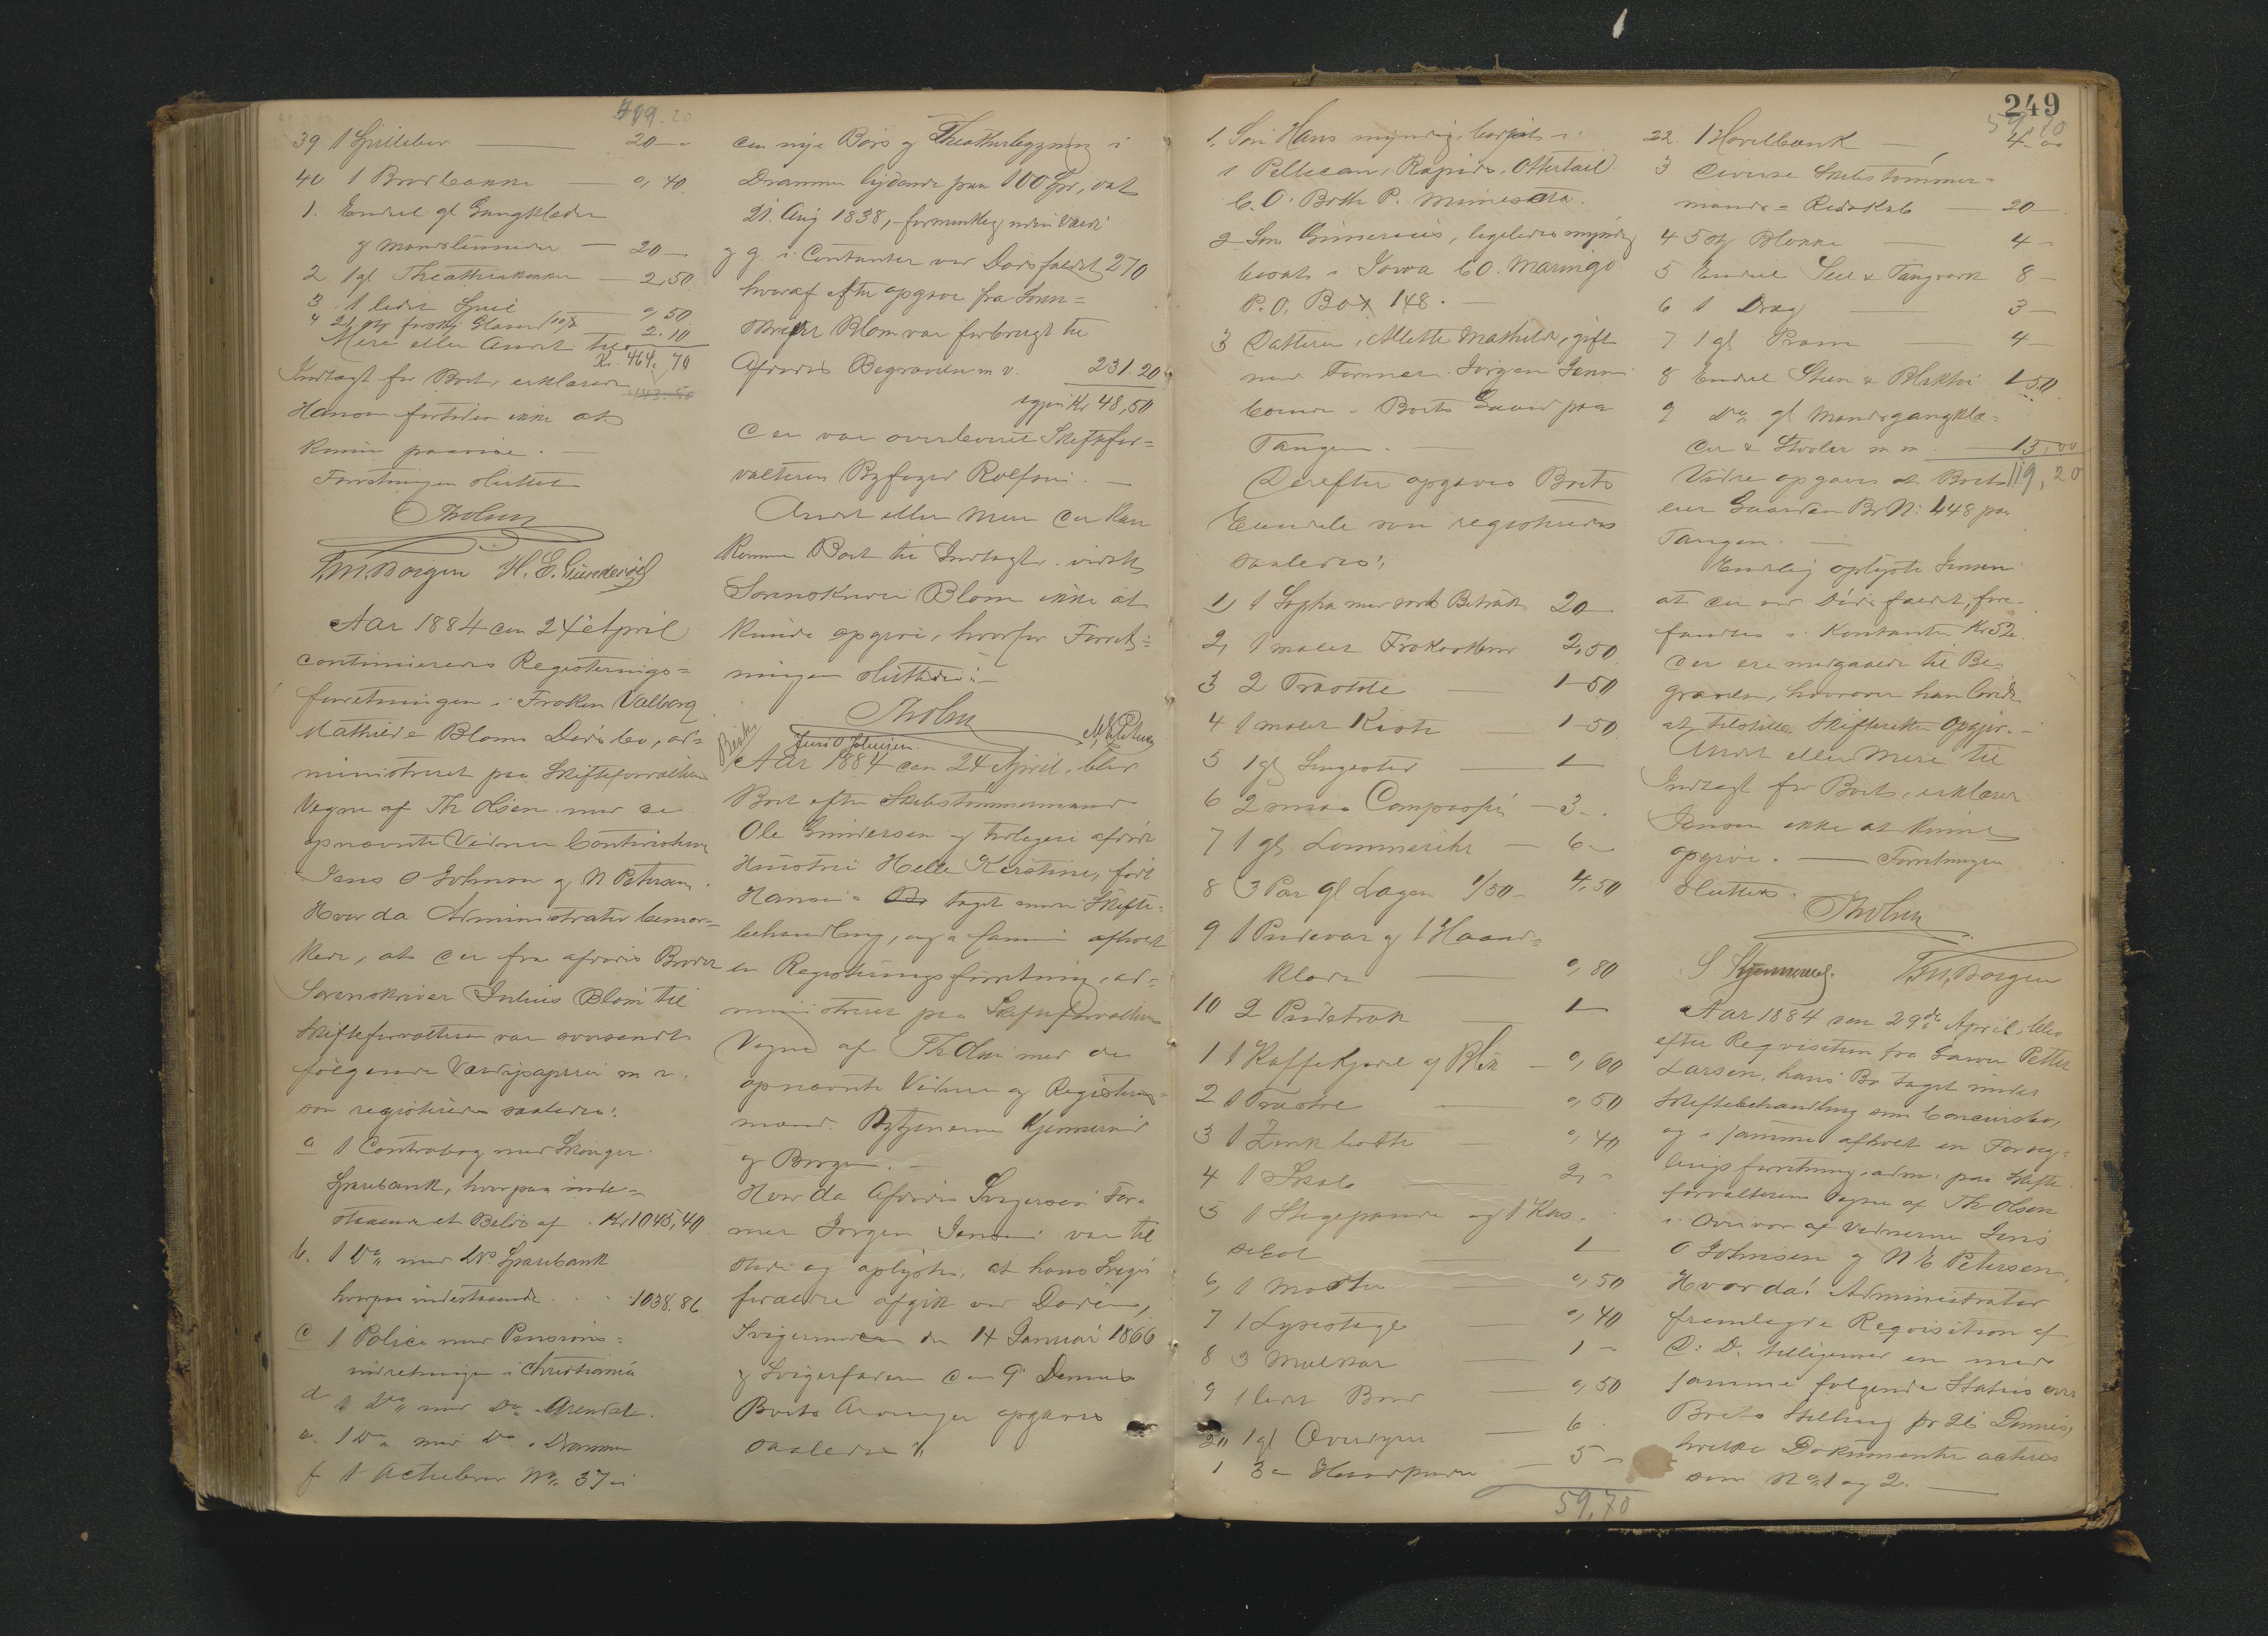 419.20
39 1 Spillebor — 20 —
40 1 Brødbakke — ", 40
1. Endeel gl Gangklæder
og Mandslinneder — 20 —
2 1 gl Theatherkikker — 2,50
3 1 lidet Speil — ", 50
" 21 Stk forskj Glasser 10/ — 2.10
Mere eller Andet til
Kr. 464,70
Indtægt for Boet, erklærede
Hansen fortiden ikke at
kunne paavise. —
Forretningen sluttet
ThOlsen
T.M. Borgen H. E. Gundersen
Aar 1884 den 24de April
continueredes Registerings=
forretningen i Frøken Valborg
Mathilde Bloms Dødsbo, ad=
ministreret paa Skifteforvalterens
Vegne af Th Olsen med de
opnævnte Vidner Contorist
Jens O Johnsen og N Petersen.
Hvor da Administrator bemær=
kede, at der fra afdødes Broder
Sorenskriver Julius Blom til
Skifteforvalteren var oversendt
følgende Værdipapirer m v.
som registeredes saaledes:
a 1 Contrabog med Skouger
Sparebank, hvorpaa inde=
staaende et Beløb af Kr 1045,40
b. 1 Do med Ds Sparebank
hvorpaa indestaaende . . 1038.86
c 1 Police med Pensions=
indretningen i Christiania
d 1 Do med Do Arendal.
e. 1 Do med Do i Drammen
f 1 Actiebrev No 37 i
den nye Børs og Theaterbygning i
Drammen lydende paa 100 Spd, dat
21. Aug 1838, - formentlig uden Værdi
og g. i Contanter ved Dødsfaldet 270
hvoraf efter Opgave fra Soren=
skriver Blom var forbrugt til
Afdødes Begravelse m v. 231.20
igjen Kr 48,50
der var overleveret Skiftefor=
valteren Byfoged Rolfsen. —
Andet eller Mere der kan
komme Boet til Indtægt vidste
Sorenskriver Blom ikke at
kunde opgive, hvorfor Forret=
ningen sluttedes:—
ThOlsen
Jens O Johnsen N E Petersen
Beskr
Aar 1884 den 24 April, blev
Boet efter Skibstømmermand
Ole Gundersen og tidligere afdøde
Hustru Helle Kirstine, født
Hansen Bo taget under Skifte=
behandling, og i samme afholdt
en Registeringsforretning, ad=
ministreret paa Skifteforvalterens
Vegne af Th Olsen med de
opnævnte Vidner og Registerings=
mænd Bytjenerne Kjennerud
og Borgen. —
Hvor da Afdødes Svigersøn Far=
mer Jørgen Jensen var til
stede og oplyste, at hans Sviger
forældre afgik ved Døden,
Svigermoderen den 14 Januar 1866
og Svigerfaderen den 9 Dennes
Boets Arvinger opgaves
saaledes:
249
1. Søn Hans myndig, bosat i
i Pellican, Rapids, Ottertail
C.O. Both P. Minnesota.
2 Søn Gunerius, ligeledes myndig
bosat i Iowa C.O. Maringo
P.O. Box 148. —
3 Datteren, Alette Mathilde, gift
med Farmer Jørgen Jensen
boende i Boets Gaard paa
Tangen. —
Derefter opgaves Boets
Eiendele som registredes
saaledes:
1) 1 Sopha med sort Betræk 20 —
2, 1 malet Frokostbord 2,50
3 2 Træstole — 1-50
4 1 malet Kiste 1-50
5 1 gl Sengested — 1 —
6 2 smaa Compasse — 3 —
7 1 gl Lommeuhr — 6 —
8 3 Par gl Lagen 1/50 — 4,50
9 1 Pudevar og 1 Haand=
klæde — ", 80
10 2 Pudetræk — 1 —
1 1 Kaffekjedel af Blik — ", 60
2 1 — ", 50
3 1 Zink bøtte — ", 40
4 1 Skab — 2, —
5 1 Stegepande og 1 Kas=
serol — 1 —
6, 1 — ", 50
7 1 Lysestage — ", 40
8 3 — 1 —
9 1 lidet Bord — ", 50
20 1 gl Overdyne — 6
1 3 Hovedpuder — 5 —
59,70
59,70
22 1 Høvelbænk — 4-00
3 Diverse Skibstømmer=
mands= Redskab 20 —
4 5 Stk Blokke — 4 —
5 Endeel Seil & Tougværk 8 —
6 1 Drag — 3 —
7 1 gl Pram — 4 —
8 Endeel Steen & Bliktøi 1-50
9 Do gl Mandsgangklæ=
der & Støvler m m — 15,00
119,20
Videre opgaves at Boet
eier Gaarden Br N: 448 paa
Tangen. —
Endelig oplyste Jensen
at der ved Dødsfaldet, fore=
fandtes i Kontanter Kr 52
der ere medgaaede til Be=
gravelse, hvorover han lovede
at tilstille Skifteretten Opgjør. —
Andet eller Mere til
Indtægt for Boet, erklærer
Jensen ikke at kunne
opgive. — Forretningen
sluttes.
ThOlsen
S Kjennerud T.M. Borgen
Aar 1884 den 29de April, blev
efter Reqvisition fra Garver Petter
Larsen, hans Bo taget under
Skiftebehandling som Concursbo,
og i samme afholdt en Forseg=
lingsforretning, adm. paa Skifte
forvalterens Vegne af Th Olsen
i Overvær af Vidnerne Jens
O Johnsen og N E Petersen,
Hvor da! Administrator
fremlagde Reqvisition af
D: D: tilligemed en med
samme følgende Status over
Boets Stilling pr 26 Dennes,
hvilke Dokumenter acteres
som No 1 og 2. —